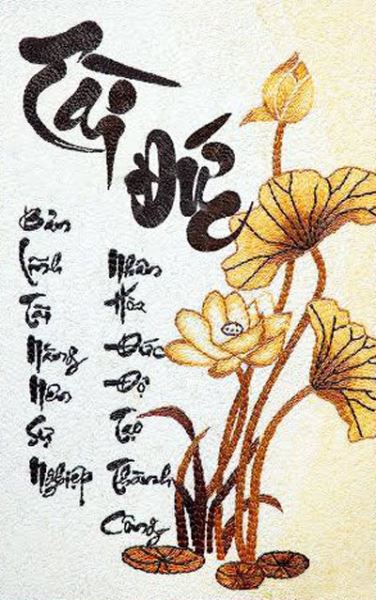 Tài
Đức
Bản
Lĩnh
Tài
Năng
Nên
Sự
Nghiệp
Nhân
Hòa
Đức
Độ
Tạo
Thành
Công